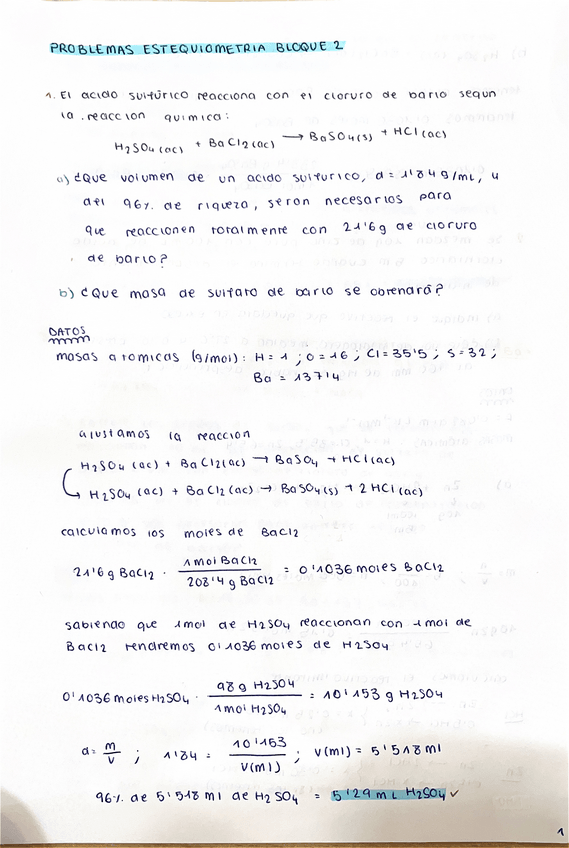 PROBLEMAS ESTEQUIOMETRIA BLOQUE 2
1. El acido sulfúrico reacciona con el cloruro de bario segun
la reaccion quimica:
H2SO4(ac) + BaCl2(ac) → BaSO4(s) + HCl(ac)
a) ¿Que volumen de un acido sulfurico, d=1'84g/mL, y
del 96% de riqueza, seron necesarios para
que reaccionen totalmente con 21'6g de cloruro
de bario?
b) ¿Que masa de sulfato de bario se obtendrá?
DATOS
masas atomicas (g/mol): H=1; O=16; Cl=35'5; S=32;
Ba=137'4
ajustamos la reaccion
H2SO4 (ac) + BaCl2(ac) → BaSO4 + HCl(ac)
H2SO4 (ac) + BaCl2 (ac) → BaSO4(s) + 2 HCl(ac)
calculamos los moles de BaCl2
21'6 g BaCl2 · 1mol BaCl2 / 208'4 g BaCl2 = 0'1036 moles BaCl2
sabiendo que 1mol de H2SO4 reaccionan con 1mol de
BaCl2 tendremos 0'1036 moles de H2SO4
0'1036 moles H2SO4 · 98 g H2SO4 / 1mol H2SO4 = 10'153 g H2SO4
d= m/v ; 1'84 = 10'153 / V(ml) ; V(ml) = 5'518 ml
96% de 5'518 ml de H2SO4 = 5'29 mL H2SO4 ✓
1